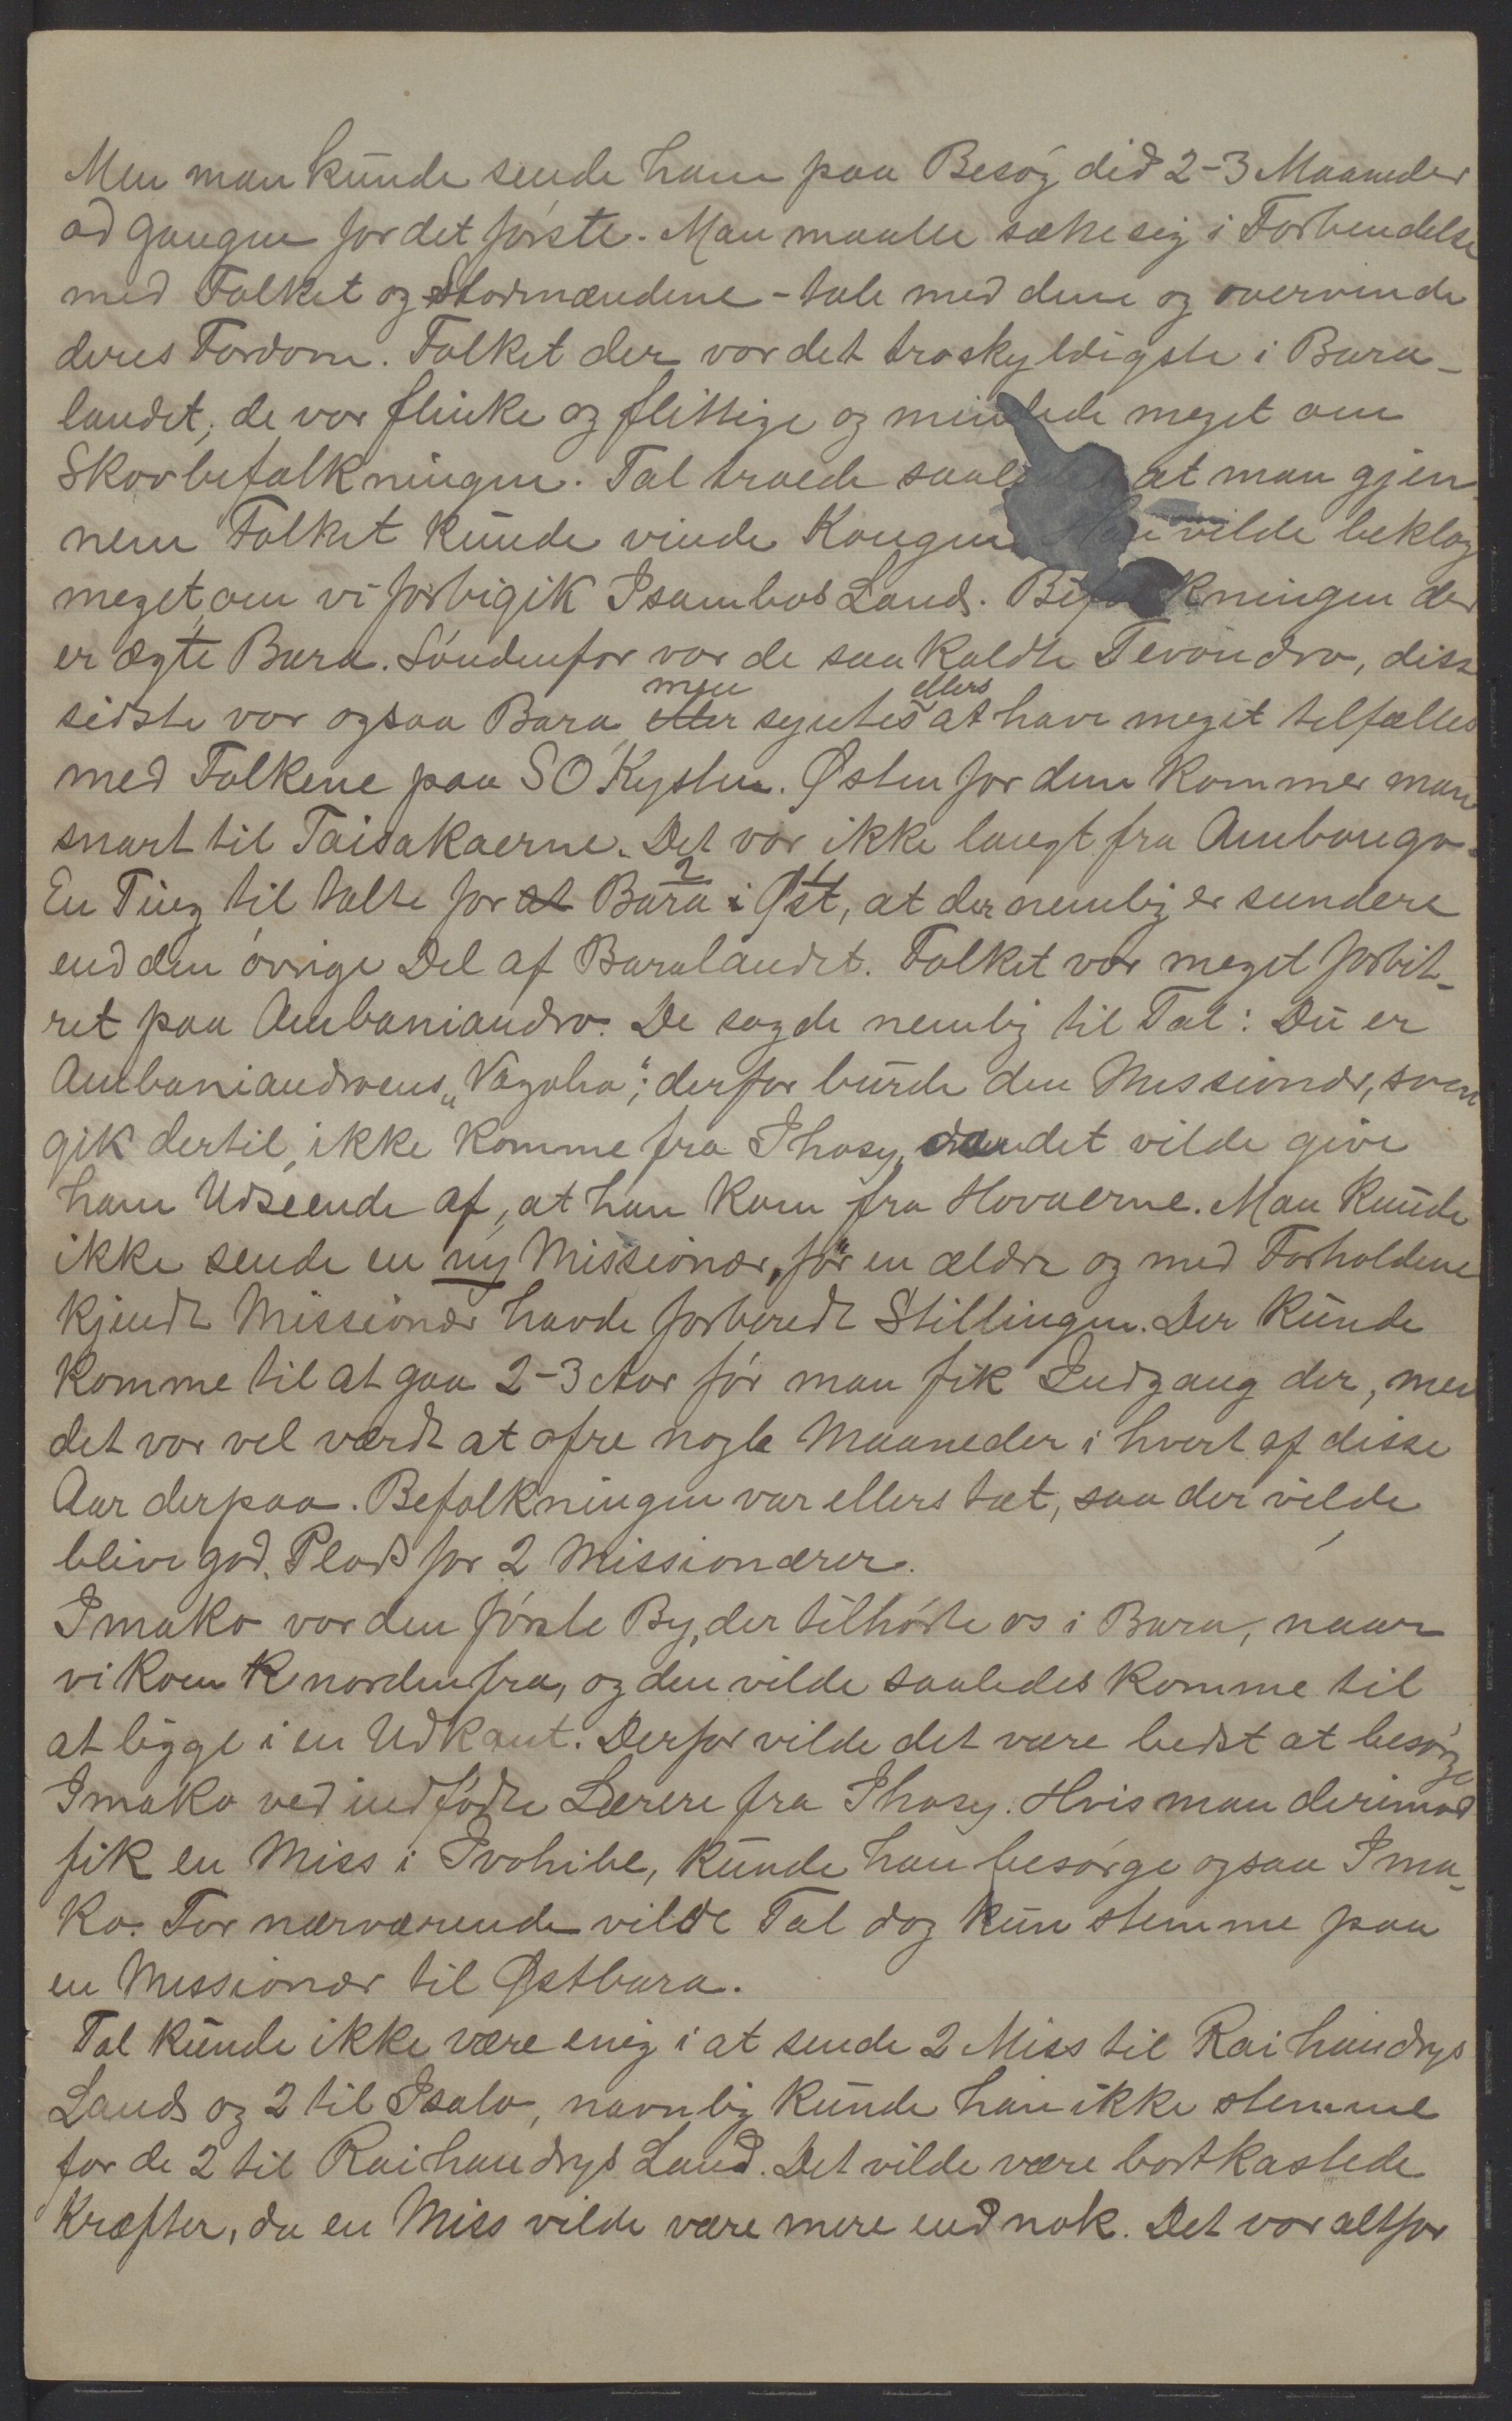 Men man kunde sende ham paa Besøg did 2-3 Maaneder
ad Gangen for det første. Man maatte sætte sig i Forbindelse
med Folket og Stormændene - tale med dem og overvinde
deres Fordom. Folket der var det troskyldigste i Bara-
landet; de var flinke og flittige og mindede meget om
Skovbefolkningen. Tal troede saaledes at man gjen-
nem Folket kunde vinde Kongen. Han vilde beklage
meget, om vi forbigik Isambos Land. Befolkningen der
er ægte Bara. Søndenfor var de saa kaldte Tevondro, disse
sidste var ogsaa Bara, men syntes ellers at have meget tilfælles
med Folkene paa SO Kysten. Østen for dem kommer man
snart til Taisakaerne. Det var ikke langt fra Ambongo.
En Ting til talte for at Bara i Øst, at der nemlig er sundere
end den øvrige Del af Baralandet. Folket var meget forbit-
ret paa Ambaniandro. De sagde nemlig til Tal: Du er
Ambaniandroens "Vazaha"; derfor burde den Missionær, som
gik dertil, ikke komme fra Ihosy, det vilde give
ham Udseende af, at han kom fra Hovaerne. Man kunde
ikke sende en ny Missionær, før en ældre og med Forholdene
kjendt Missionær havde forberedt Stillingen. Der kunde
komme til at gaa 2-3 Aar før man fik Indgang der, men
det var vel værdt at ofre nogle Maaneder i hvert af disse
Aar derpaa. Befolkningen var ellers tæt, saa der vilde
blive god Plads for 2 Missionærer.
Imako var den første By, der tilhørte os i Bara, naar
vi kom nordenfra, og den vilde saaledes komme til
at ligge i en Udkant. Derfor vilde det være bedst at besørge
Imako ved indfødte Lærere fra Ihosy. Hvis man derimod
fik en Miss i Ivohibe, kunde han besørge ogsaa Ima-
ko. For nærværende vilde Tal dog kun stemme paa
en Missionær til Østbara.
Tal kunde ikke være enig i at sende 2 Miss til Raihandrys
Land og 2 til Isalo, navnlig kunde han ikke stemme
for de 2 til Raihandrys Land. Det vilde være bortkastede
Kræfter, da en Miss vilde være mere end nok. Det var altfor